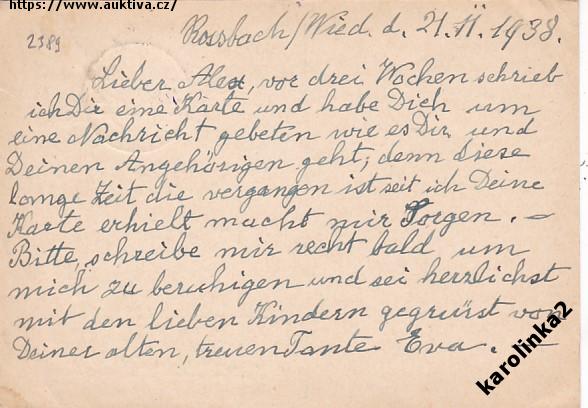 https://www.auktiva.cz/
2389
Rossbach/Wied. d. 21.11.1938.
Lieber Alex, vor drei Wochen schrieb
ich Dir eine Karte und habe Dich um
eine Nachricht gebeten wie es Dir und
Deinen Angehörigen geht; denn diese
lange Zeit die vergangen ist seit ich Deine
Karte erhielt macht mir Sorgen. –
Bitte, schreibe mir recht bald um
mich zu beruhigen und sei herzlichst
mit den lieben Kindern gegrüsst von
Deiner alten, treuen Tante Eva. –
karolinka2